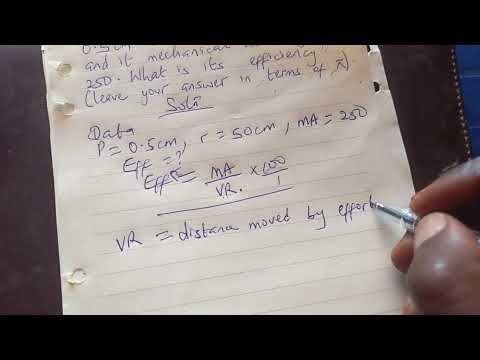 0.5cm
and it mechanical
250. What is its efficiency?
(leave your answer in terms of π).
Soln
Data
P = 0.5cm, r = 50cm, MA = 250
Eff = ?
Eff = MA/VR. × 100/1
VR = distance moved by effort